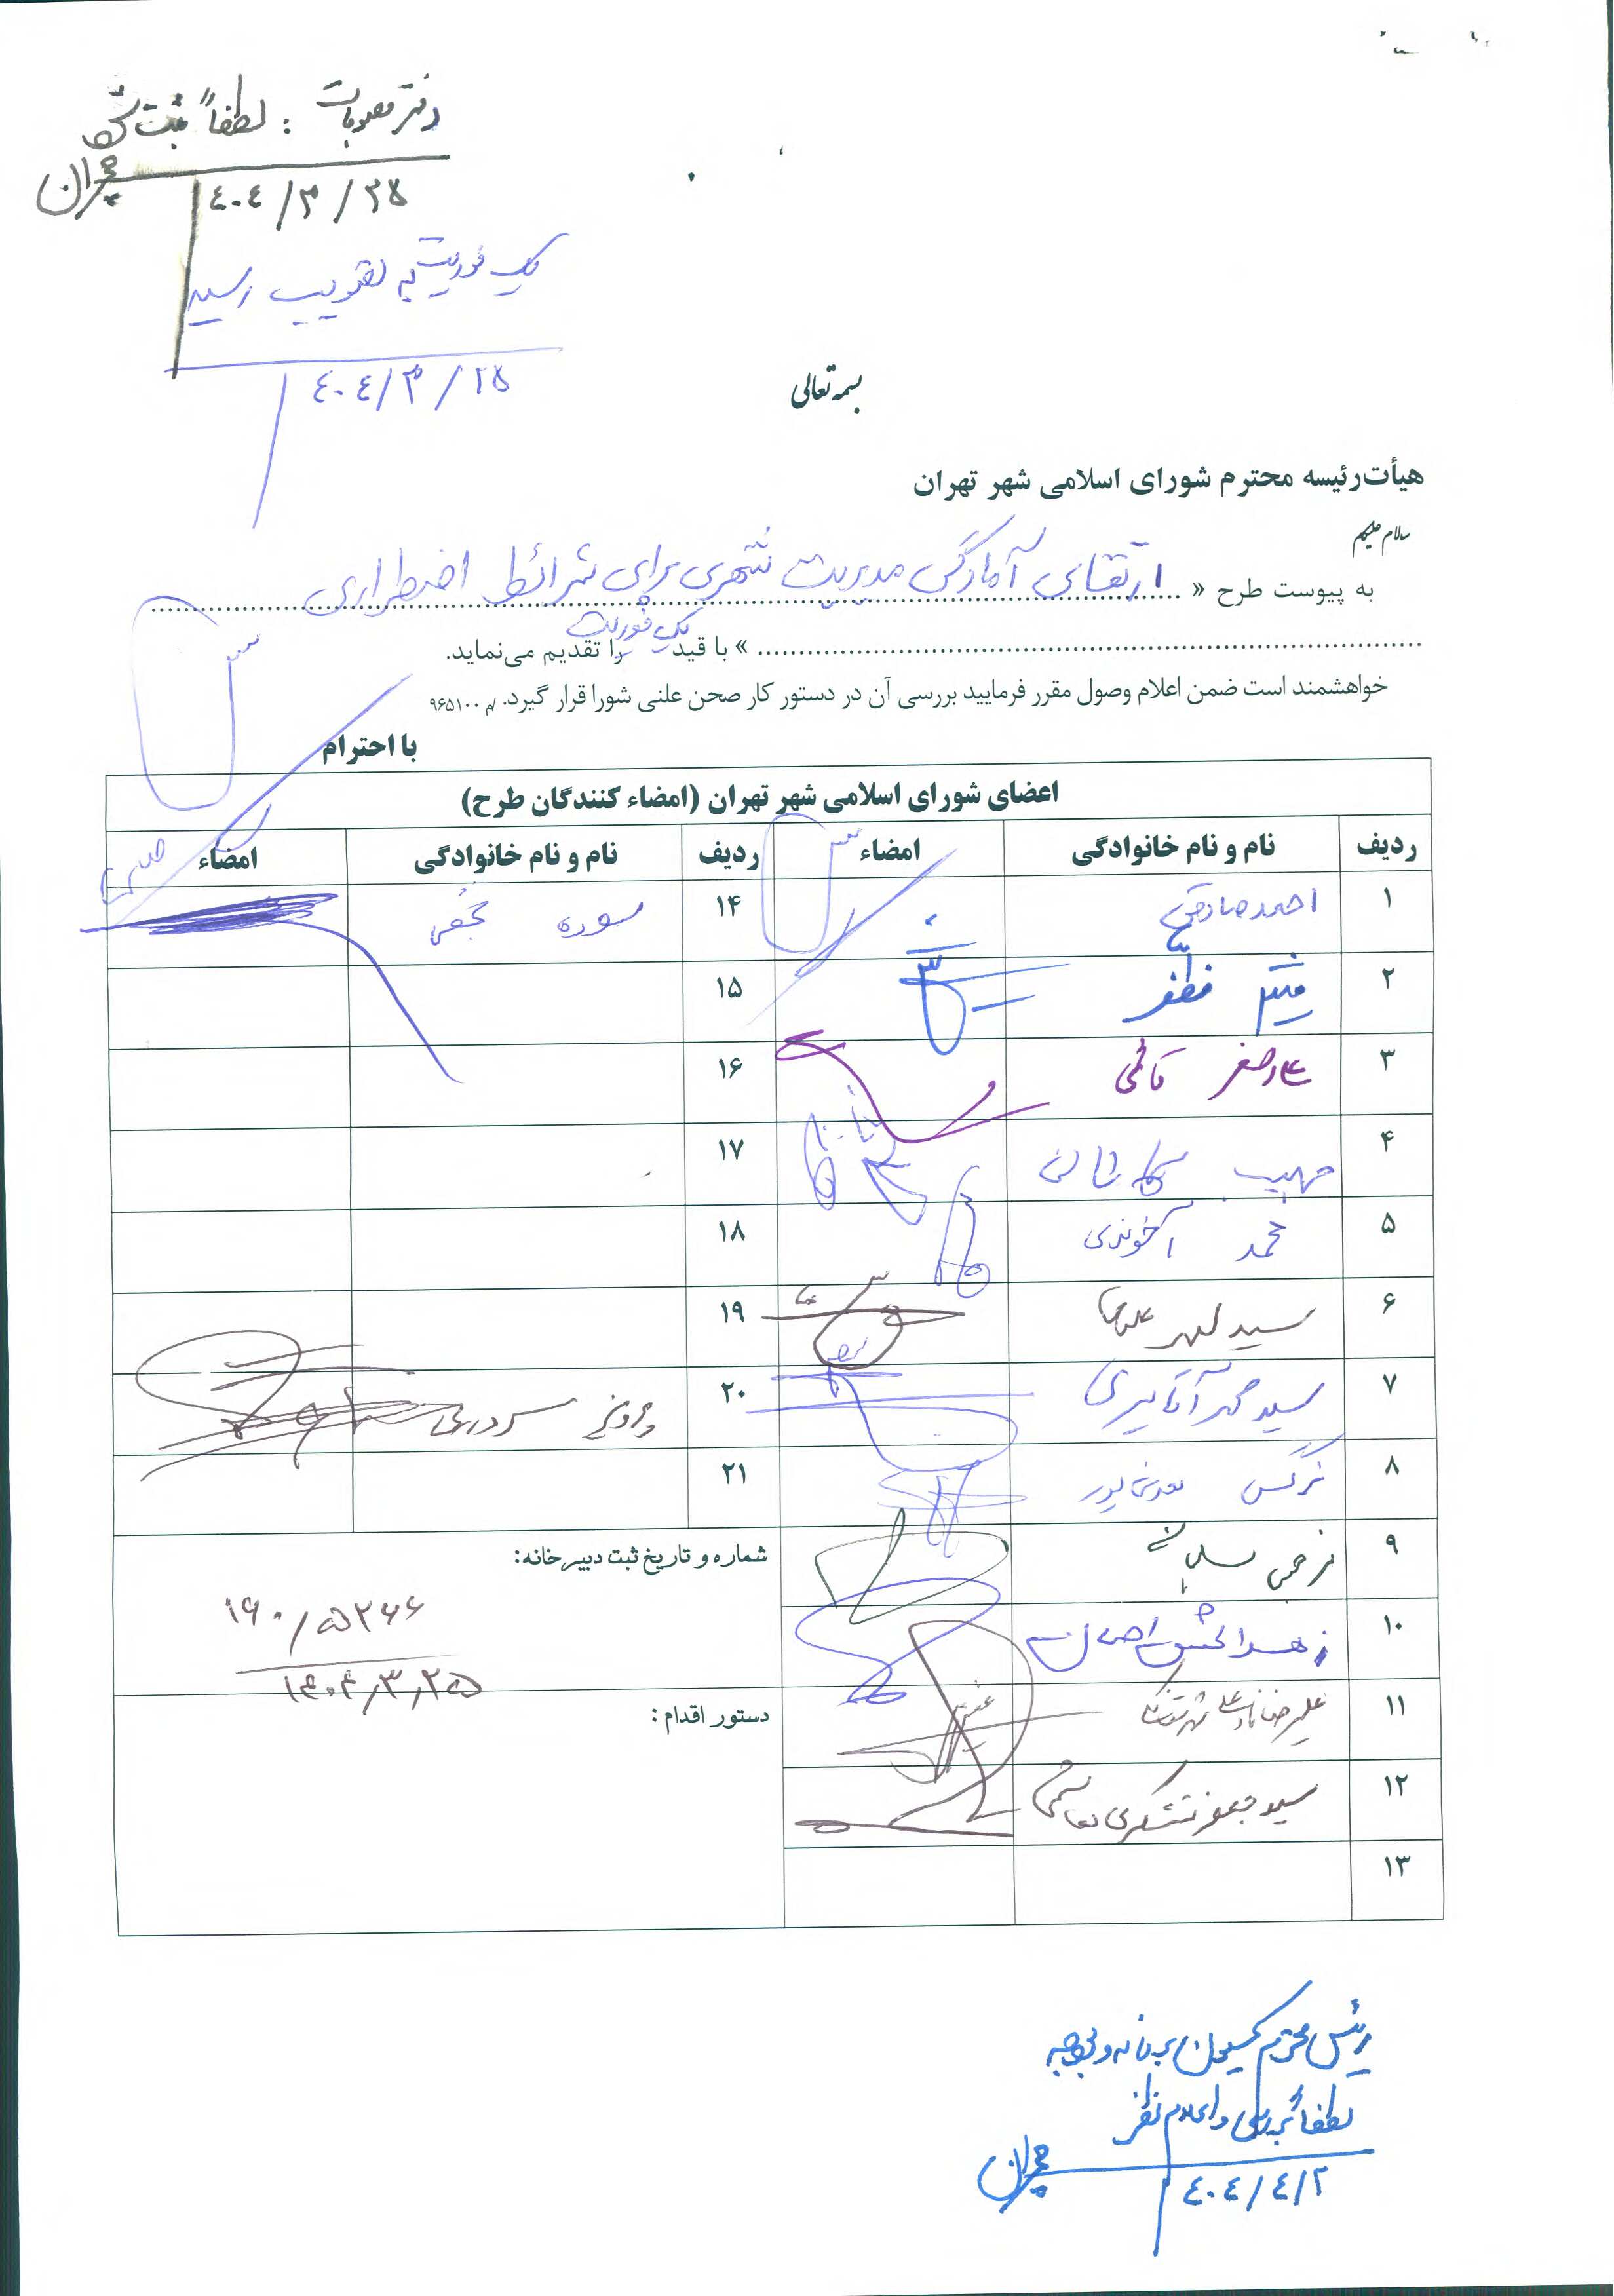 دفتر مصوبات : لطفاً ثبت شود
چمران
٤٠٤/٣/٢٥
یک فوریت به تصویب رسید
٤٠٤/٣/٢٥
بسمه تعالی
هیأت‌رئیسه محترم شورای اسلامی شهر تهران
سلام علیکم
به پیوست طرح « ارتقای آمادگی مدیریت شهری برای شرائط اضطراری
» با قید یک فوریت را تقدیم می‌نماید.
خواهشمند است ضمن اعلام وصول مقرر فرمایید بررسی آن در دستور کار صحن علنی شورا قرار گیرد. /م ۹۶۵۱۰۰
با احترام
اعضای شورای اسلامی شهر تهران (امضاء کنندگان طرح)
ردیف نام و نام خانوادگی امضاء ردیف نام و نام خانوادگی امضاء
۱ احمد صادقی ۱۴ سوده نجفی
۲ میثم مظفر ۱۵
۳ علی اصغر قائمی ۱۶
۴ حبیب کاشانی ۱۷
۵ محمد آخوندی ۱۸
۶ سید امیر ۱۹
۷ سید محمد آقامیری ۲۰ پرویز سروری
۸ نرگس معدنی پور ۲۱
۹ نرجس سلیمانی
شماره و تاریخ ثبت دبیرخانه:
۱۶۰/۵۲۶۶
۱۴۰۴/۳/۲۵
۱۰ زهرا شمس احسان
۱۱ علیرضا نادعلی
دستور اقدام :
۱۲ سید جعفر تشکری هاشمی
۱۳
رئیس محترم کمیسیون برنامه و بودجه
لطفاً بررسی و اعلام نظر
چمران
٤٠٤/٤/٢